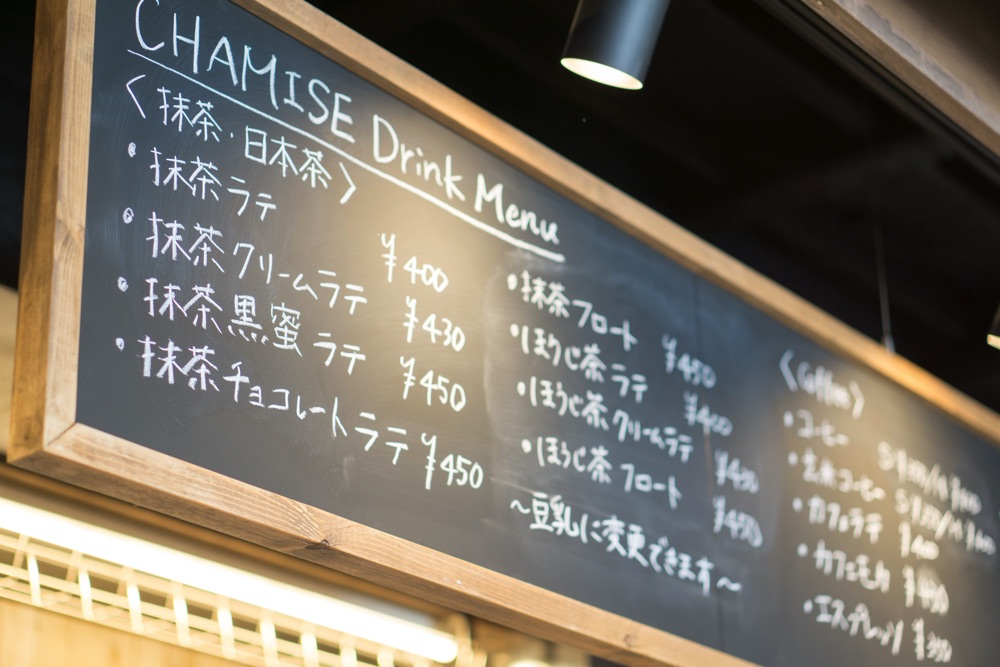 CHAMISE Drink Menu
〈抹茶・日本茶〉
・抹茶ラテ ¥400
・抹茶クリームラテ ¥430
・抹茶黒蜜ラテ ¥450
・抹茶チョコレートラテ ¥450
・抹茶フロート ¥450
・ほうじ茶ラテ ¥400
・ほうじ茶クリームラテ ¥430
・ほうじ茶フロート ¥450
～豆乳に変更できます～
〈Coffee〉
・コーヒー
・玄米コーヒー
・カフェラテ ¥400
・カフェモカ
・エスプレッソ